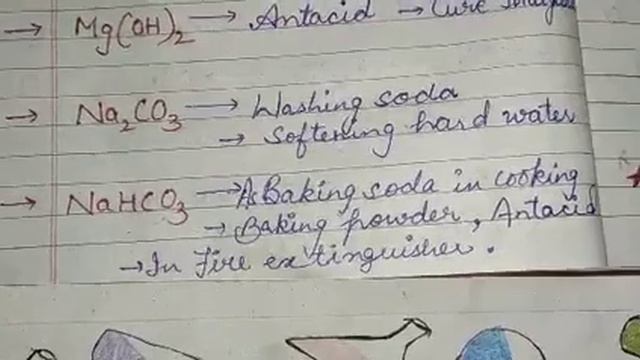 → Mg(OH)₂ → Antacid → Cure
→ Na₂CO₃ → Washing soda
→ Softening hard water
→ NaHCO₃ → As Baking soda in cooking
→ Baking powder, Antacid
→ In fire extinguisher.